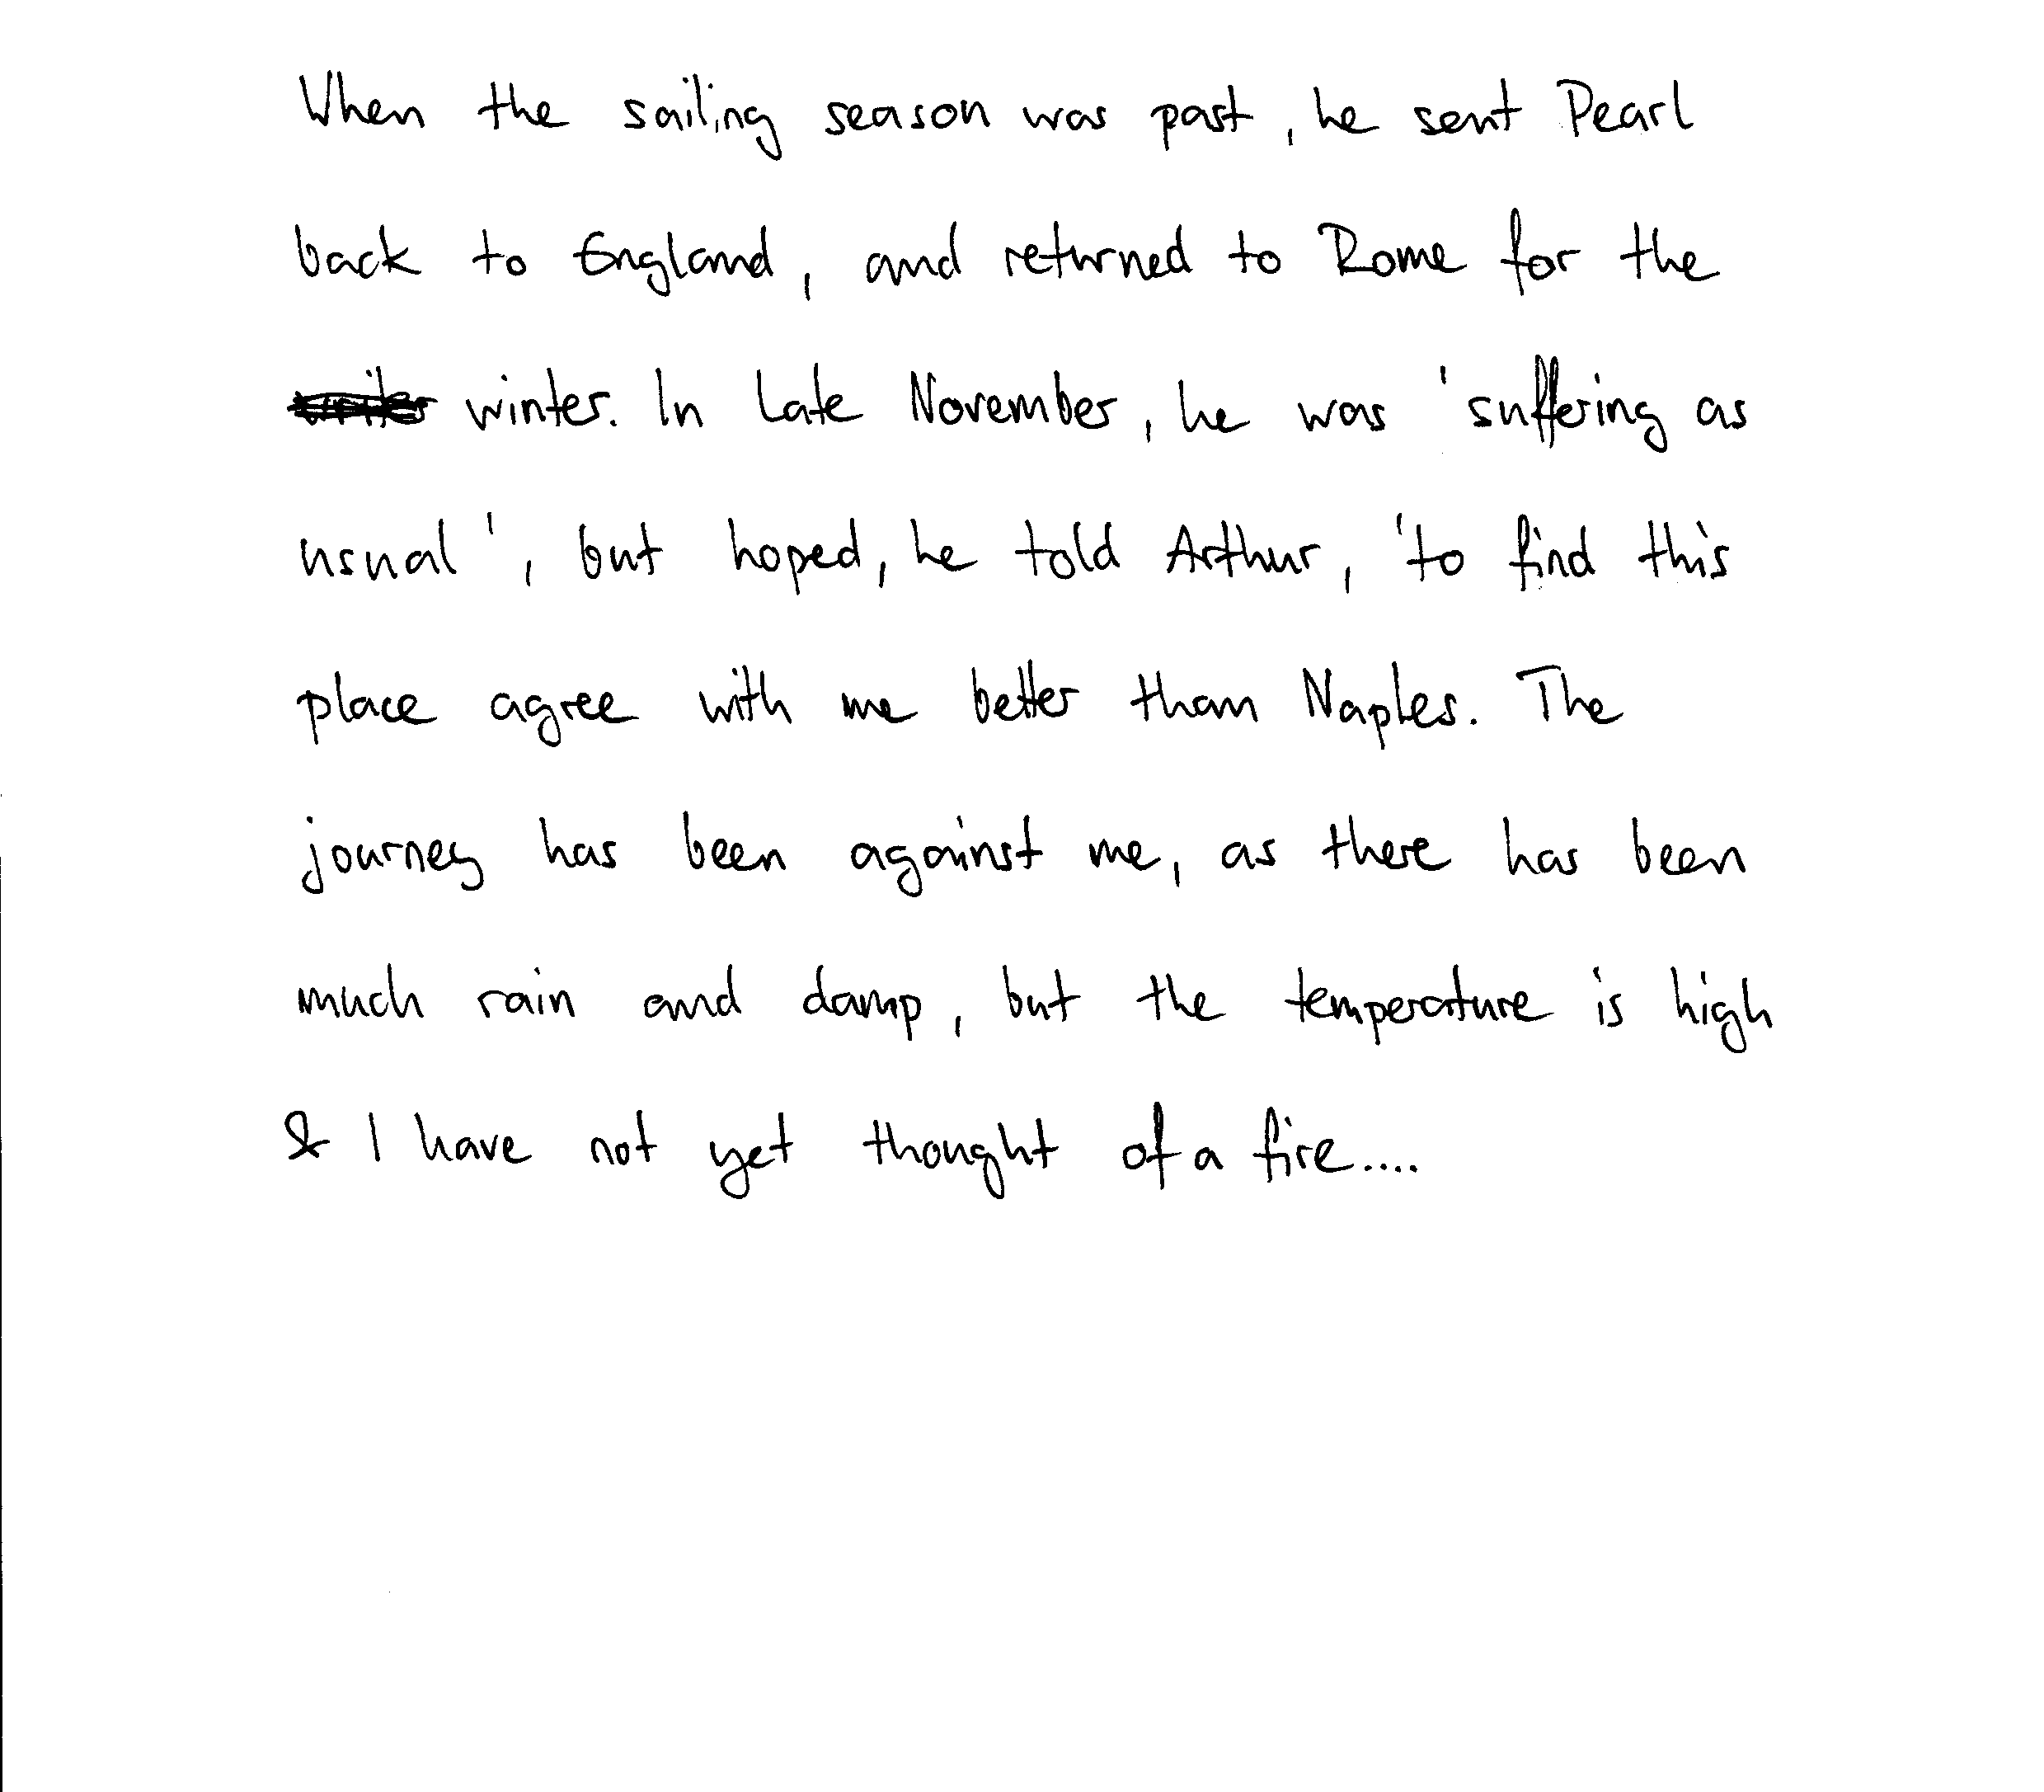 When the sailing season was past, he sent Pearl
back to England, and returned to Rome for the
winter. In late November, he was 'suffering as
usual', but hoped, he told Arthur, 'to find this
place agree with me better than Naples. The
journey has been against me, as there has been
much rain and damp, but the temperature is high
& I have not yet thought of a fire....